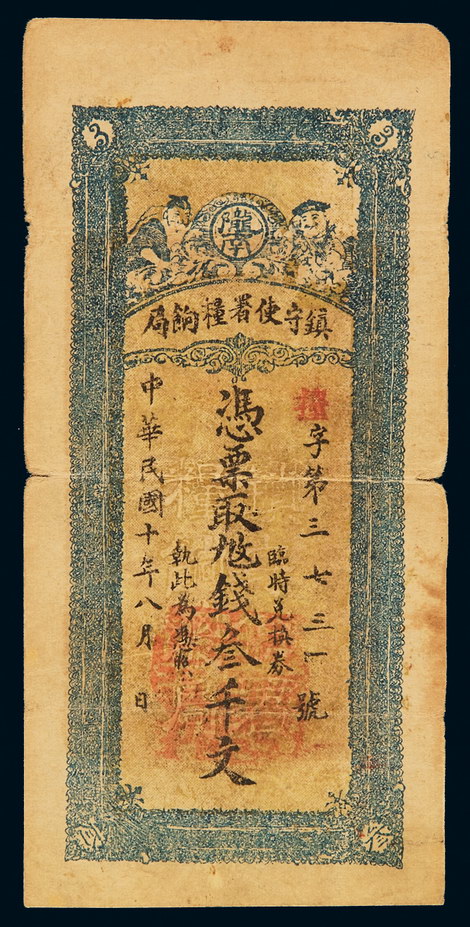 3
3
隴南
鎮守使署糧餉局
糧字第三七三一號
臨時兌換券
憑票取此錢叁千文
執此為憑照
中華民國十年八月 日
叁
叁